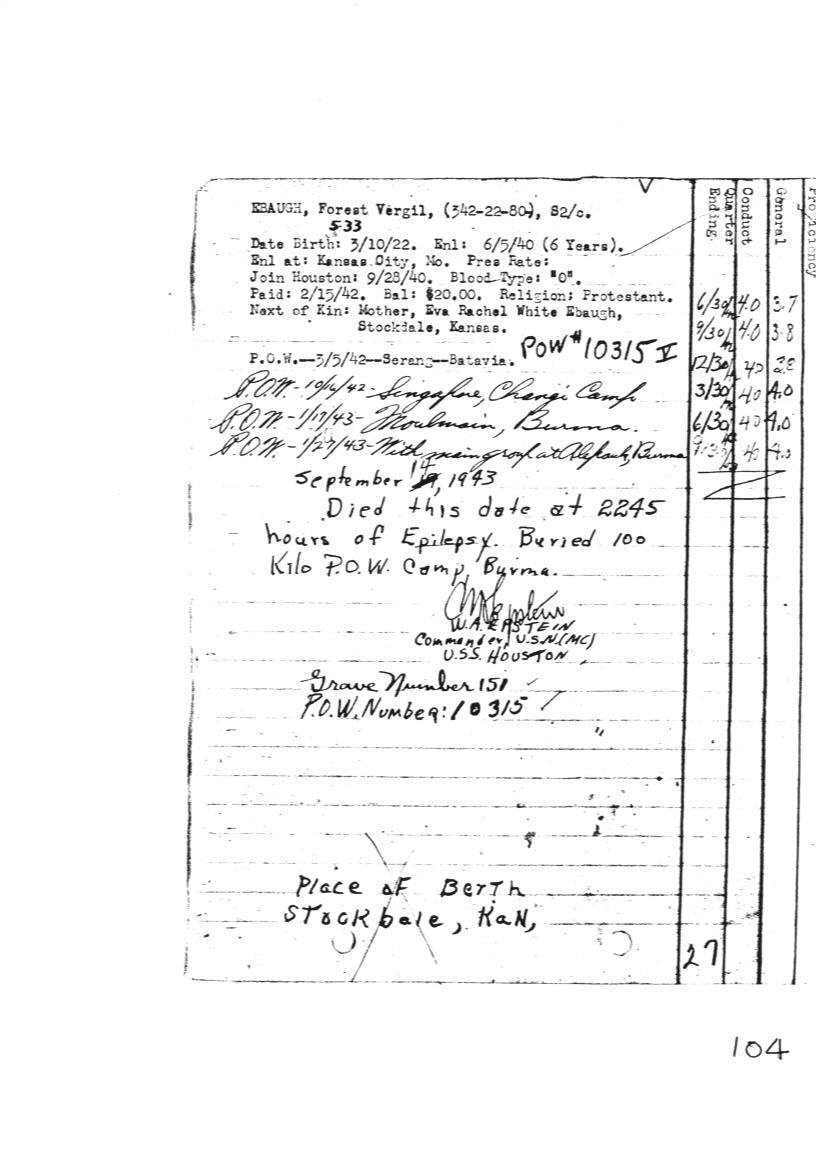 EBAUGH, Forest Vergil, (342-22-80), S2/c.
533
Date Birth: 3/10/22. Enl: 6/5/40 (6 Years).
Enl at: Kansas City, Mo. Pres Rate:
Join Houston: 9/28/40. Blood Type: "O".
Paid: 2/15/42. Bal: $20.00. Religion: Protestant.
Next of Kin: Mother, Eva Rachel White Ebaugh,
Stockdale, Kansas.
POW # 10315 V
P.O.W.--3/5/42--Serang--Batavia.
P.O.W.- 10/16/42- Singapore, Changi Camp
P.O.W.- 1/17/43- Moulmain, Burma.
P.O.W.- 1/27/43- With main group at Burma
September 14, 1943
Died this date at 2245
hours of Epilepsy. Buried 100
Kilo P.O.W. Camp, Burma.
W.A. EPSTEIN
Commander, U.S.N. (MC)
U.S.S. HOUSTON
Grave Number 151
P.O.W. Number: 10315
Place of Berth
Stockbale, Kan,
Quarter Ending
Conduct
General
Proficiency
6/30 4.0 3.7
9/30 4.0 3.8
12/30 40
3/30 40 4.0
6/30 40 4.0
40 4.0
27
104